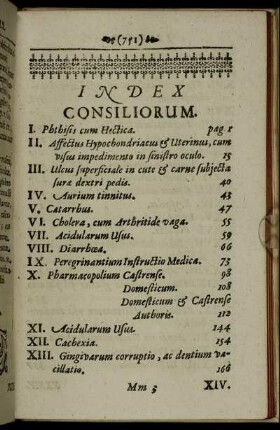 (751)
INDEX
CONSILIORUM.
I. Phthisis cum Hectica. pag 1
II. Affectus Hypochondriacus & Uterinus, cum
visus impedimento in sinistro oculo. 15
III. Ulcus superficiale in cute & carne subjecta
suræ dextri pedis. 40
IV. Aurium tinnitus. 43
V. Catarrhus. 47
VI. Cholera, cum Arthritide vaga. 55
VII. Acidularum Usus. 59
VIII. Diarrhœa. 66
IX. Peregrinantium Instructio Medica. 73
X. Pharmacopolium Castrense. 98
Domesticum. 108
Domesticum & Castrense
Authoris. 112
XI. Acidularum Usus. 144
XII. Cachexia. 154
XIII. Gingivarum corruptio, ac dentium va-
cillatio. 166
Mm 3 XIV.